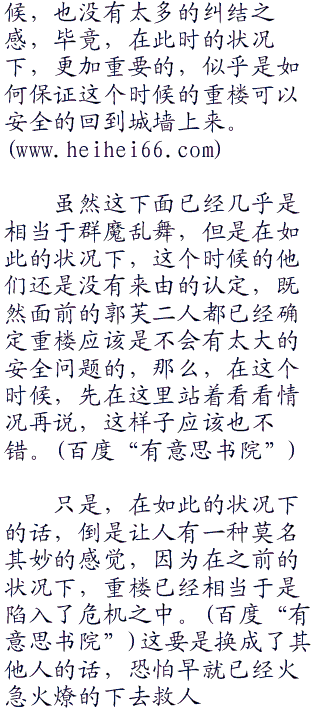 候，也没有太多的纠结之
感，毕竟，在此时的状况
下，更加重要的，似乎是如
何保证这个时候的重楼可以
安全的回到城墙上来。
(www.heihei66.com)
虽然这下面已经几乎是
相当于群魔乱舞，但是在如
此的状况下，这个时候的他
们还是没有来由的认定，既
然面前的郭芙二人都已经确
定重楼应该是不会有太大的
安全问题的，那么，在这个
时候，先在这里站着看看情
况再说，这样子应该也不
错。(百度“有意思书院”)
只是，在如此的状况下
的话，倒是让人有一种莫名
其妙的感觉，因为在之前的
状况下，重楼已经相当于是
陷入了危机之中。(百度“有
意思书院”)这要是换成了其
他人的话，恐怕早就已经火
急火燎的下去救人